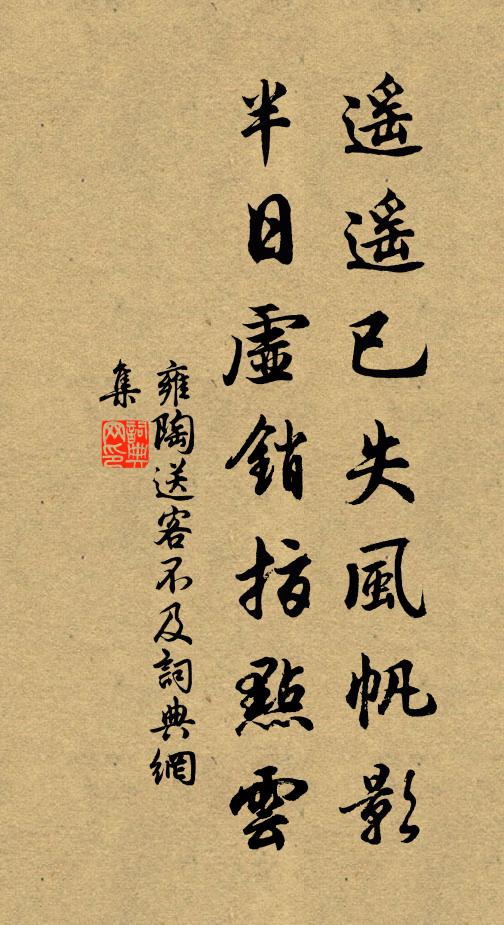 遥遥已失風帆影
半日虛銷指點雲
雍陶送客不及詞典網
集
詞典
网印